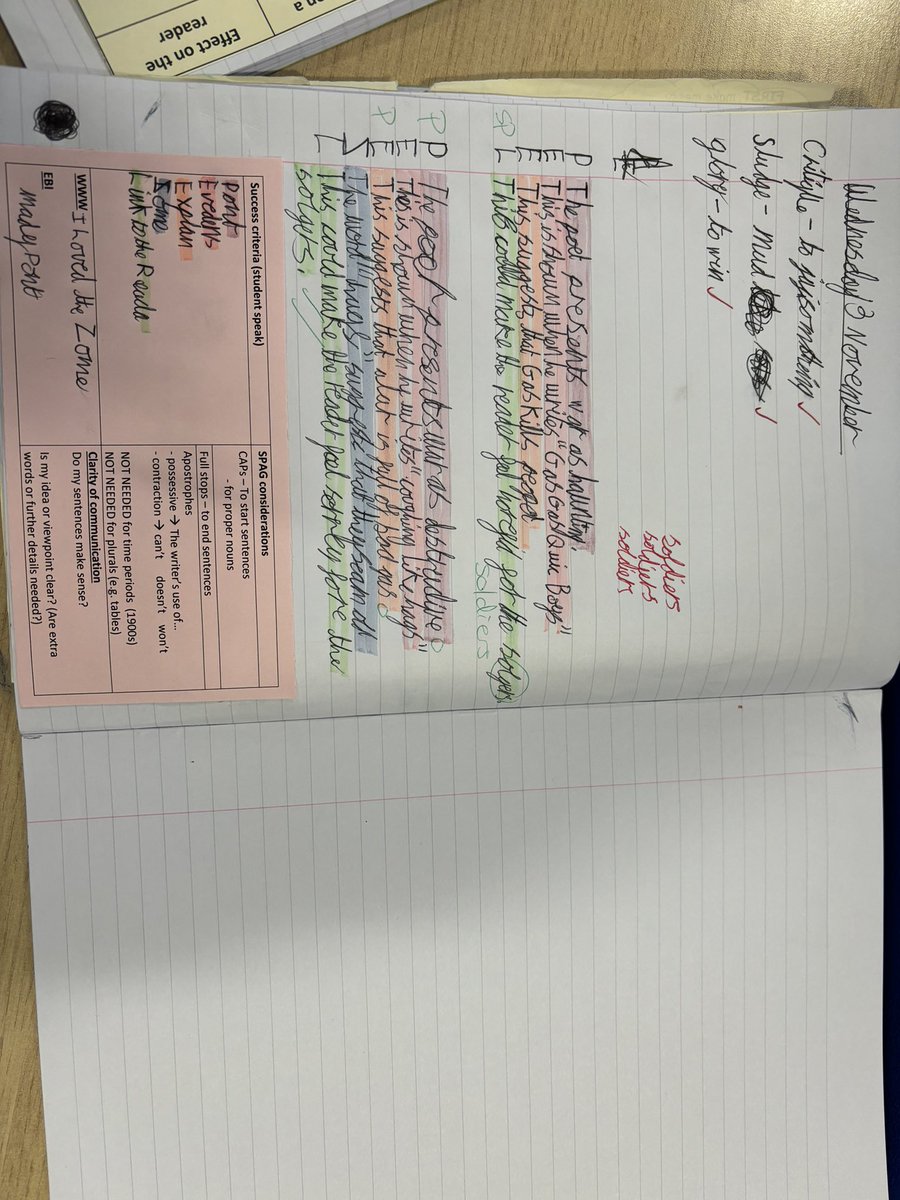 Effect on the
reader
on a
Wednesday 12 November
Critique - to ✓
Sludge - mud ✓
glory - to win ✓
soldiers
soldiers
soldiers
P The poet presents war as haunting
E This is shown when he writes "Gas Gas Quic Boys"
E This suggests that Gas kills
L This could make the reader feel horead for the solgers.
SP
soldiers
P The poet presents war as distructive
E This is shown when he writes "coughing like hags"
E This suggests that war is full of
Z The word "hags" suggests that they
L This could make the reader feel for the
solgers.
P
P
Success criteria (student speak)
Pont
Evedens
Explan
Zome
Link to the Reader
WWW I Loved the Zome
EBI
my Pont
SPAG considerations
CAPs – To start sentences
- for proper nouns
Full stops – to end sentences
Apostrophes
- possessive → The writer's use of...
- contraction → can't doesn't won't
NOT NEEDED for time periods (1900s)
NOT NEEDED for plurals (e.g. tables)
Clarity of communication
Do my sentences make sense?
Is my idea or viewpoint clear? (Are extra
words or further details needed?)